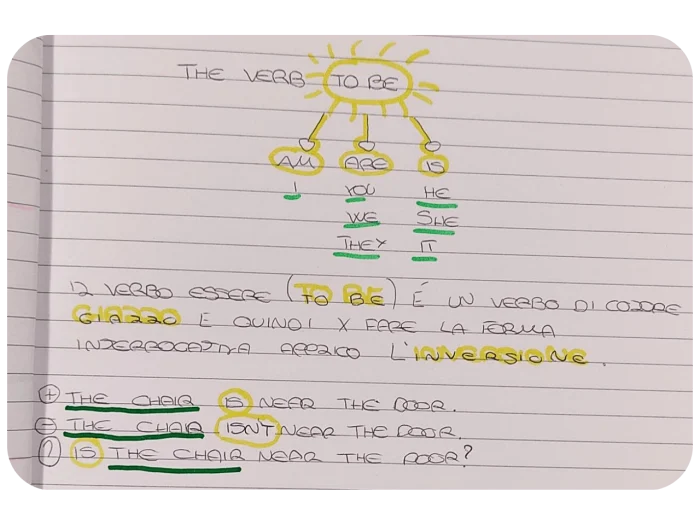 THE VERB TO BE
AM ARE IS
I YOU HE
WE SHE
THEY IT
IL VERBO ESSERE (TO BE) É UN VERBO DI COLORE
GIALLO E QUINDI X FARE LA FORMA
INTERROGATIVA APPLICO L'INVERSIONE.
+ THE CHAIR IS NEAR THE DOOR.
- THE CHAIR ISN'T NEAR THE DOOR.
? IS THE CHAIR NEAR THE DOOR?